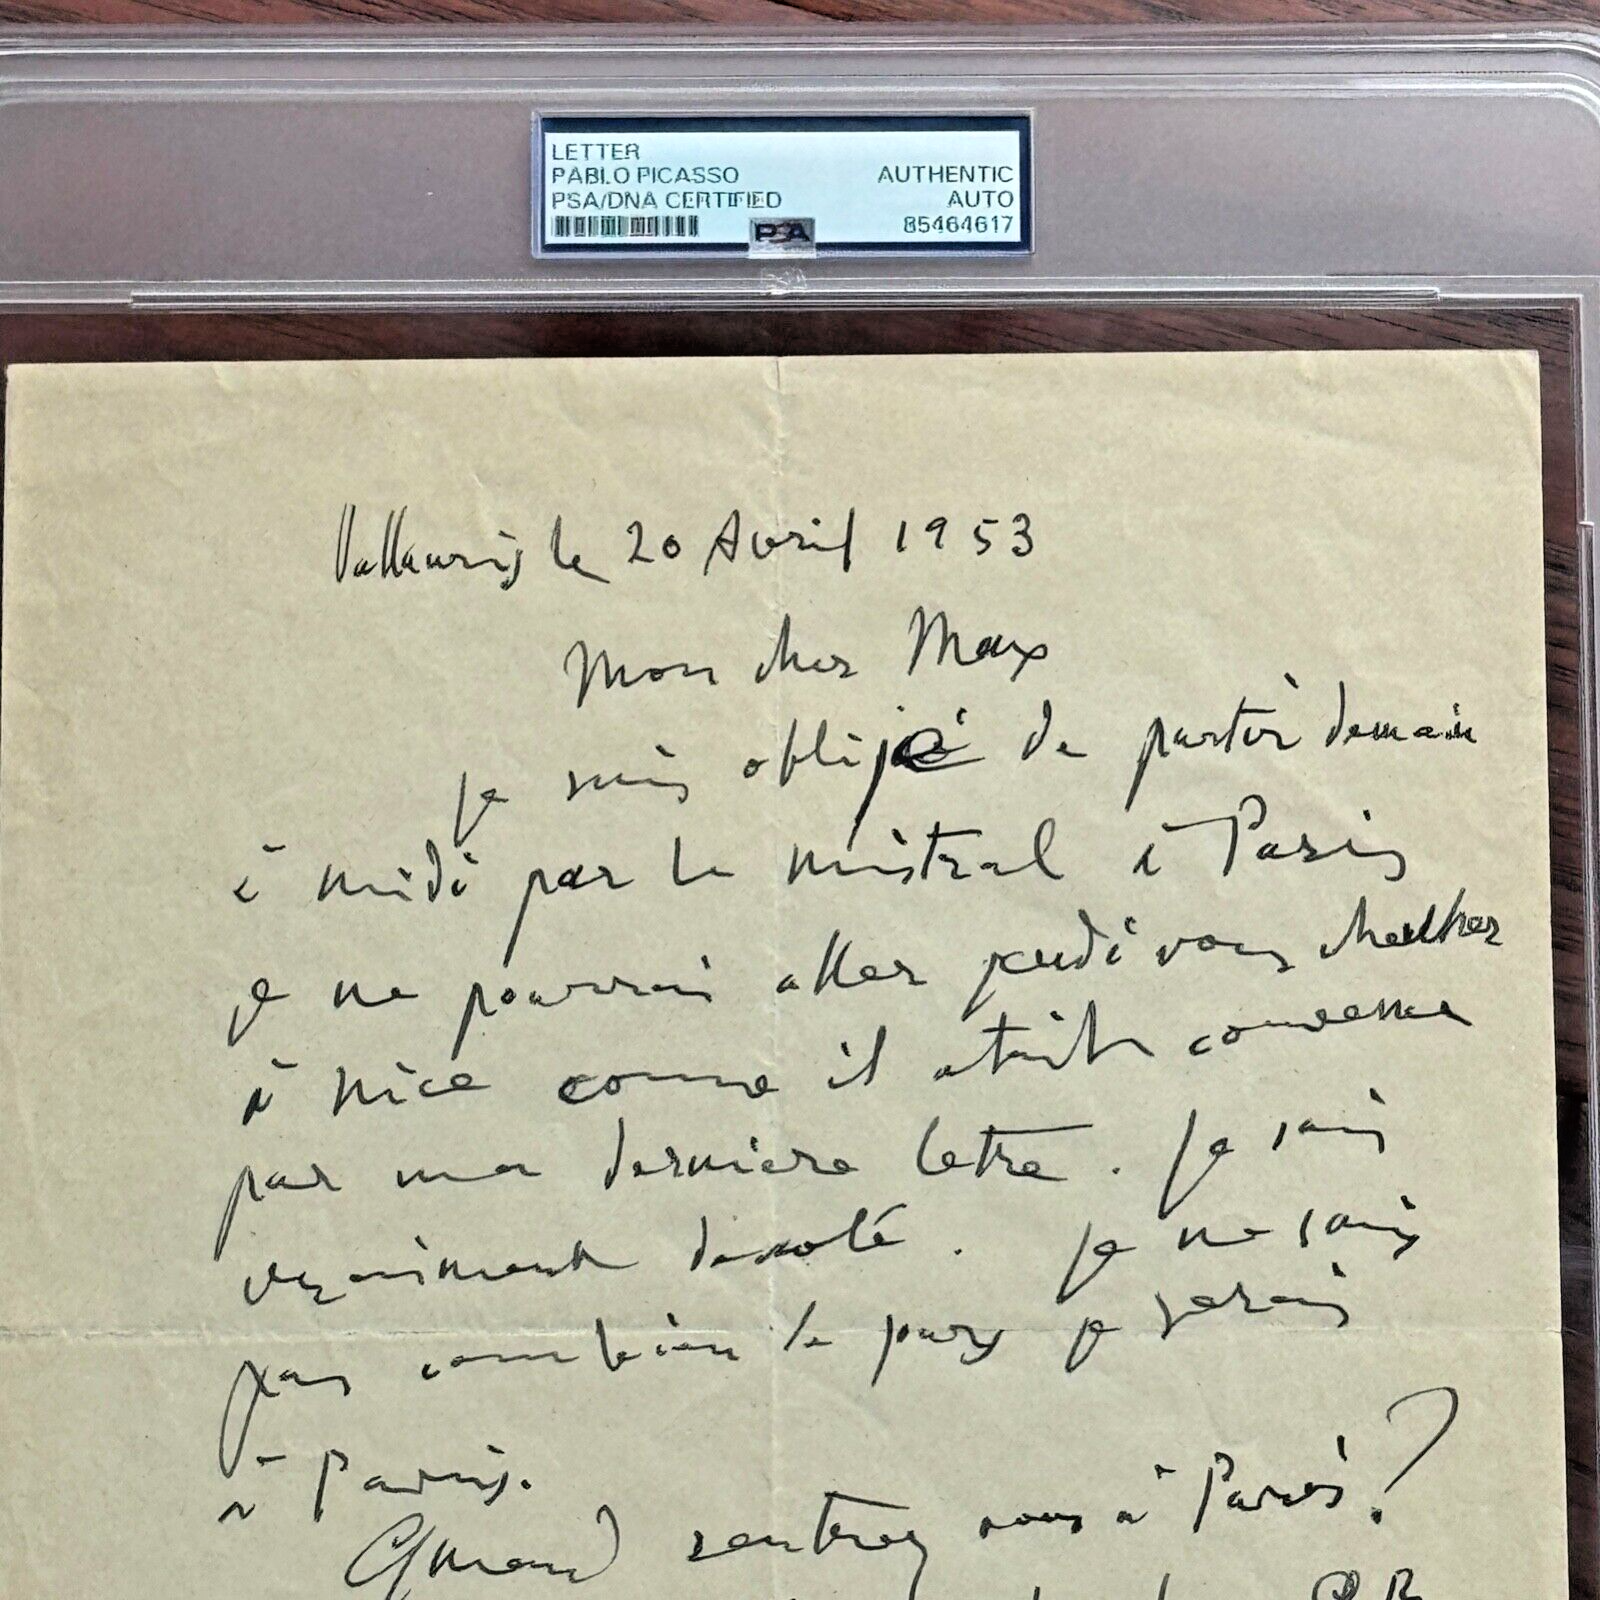 LETTER
PABLO PICASSO
PSA/DNA CERTIFIED
AUTHENTIC
AUTO
85464617
PSA
Vallauris le 20 Avril 1953
Mon cher Max
je suis oblijé de partir demain
à midi par le mistral à Paris
je ne pourrai aller jeudi vous chercher
à nice comme il était convenu
par ma derniere letre. Je suis
vraiment desolé. Je ne sais
pas combien de
je serais
à Paris.
Quand rentrez vous à Paris?